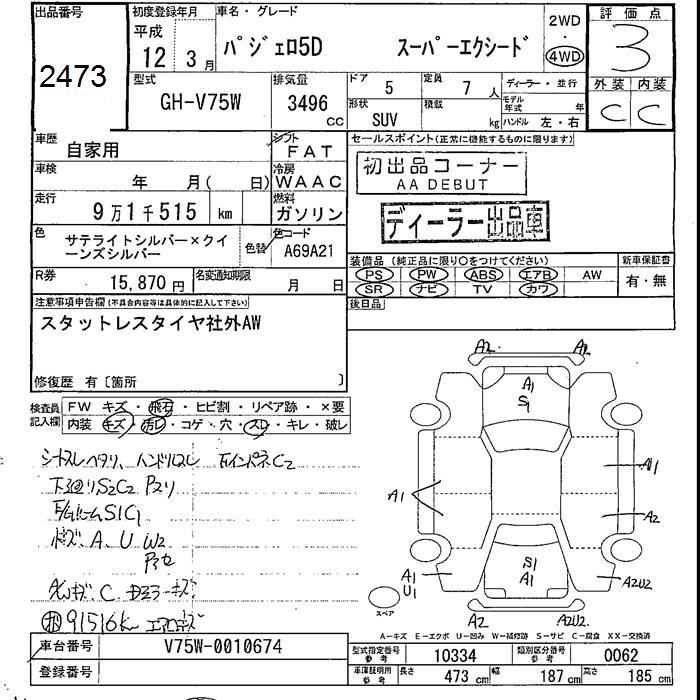 出品番号
2473
初度登録年月
平成
12年 3月
車名・グレード
パジェロ5D スーパーエクシード
2WD
・
4WD
評価点
3
外装 内装
C C
型式
GH-V75W
排気量
3496
CC
ドア 5
定員 7 人
形状 SUV
積載 kg
ディーラー・並行
モデル年式 年
ハンドル 左・右
車歴
自家用
シフト
FAT
車検
年 月( 日)
冷房
WAAC
走行
9万1千515 km
燃料
ガソリン
色
サテライトシルバー×クイーンズシルバー
色替
色コード
A69A21
R券
15,870円
名変通知期限
月 日
セールスポイント(正常に機能するものに限ります)
初出品コーナー
AA DEBUT
ディーラー出品車
装備品 (純正品に限り○をつけてください)
PS PW ABS エアB AW
SR ナビ TV カワ
新車保証書
有・無
後日品
注意事項申告欄(不具合内容等は具体的に記入して下さい)
スタットレスタイヤ社外AW
修復歴 有〔箇所 〕
検査員記入欄
FW キズ・飛石・ヒビ割・リペア跡・×要
内装 キズ・汚レ・コゲ・穴・スレ・キレ・破レ
シートスレヘタリ、ハンドルスレ
下回りS2C2
S1C1
A、U W2
91516k
A2 A2
A1
S1
A1
A1
A2
S1
A1
A1
U1
A2U2
A2 A2U2
スペア
A-キズ E-エクボ U-凹み W-補修跡 S-サビ C-腐食 XX-交換済
車台番号
V75W-0010674
登録番号
型式指定番号
参考
10334
類別区分番号
参考
0062
車庫証明用
参考
長さ 473 cm
幅 187 cm
高さ 185 cm